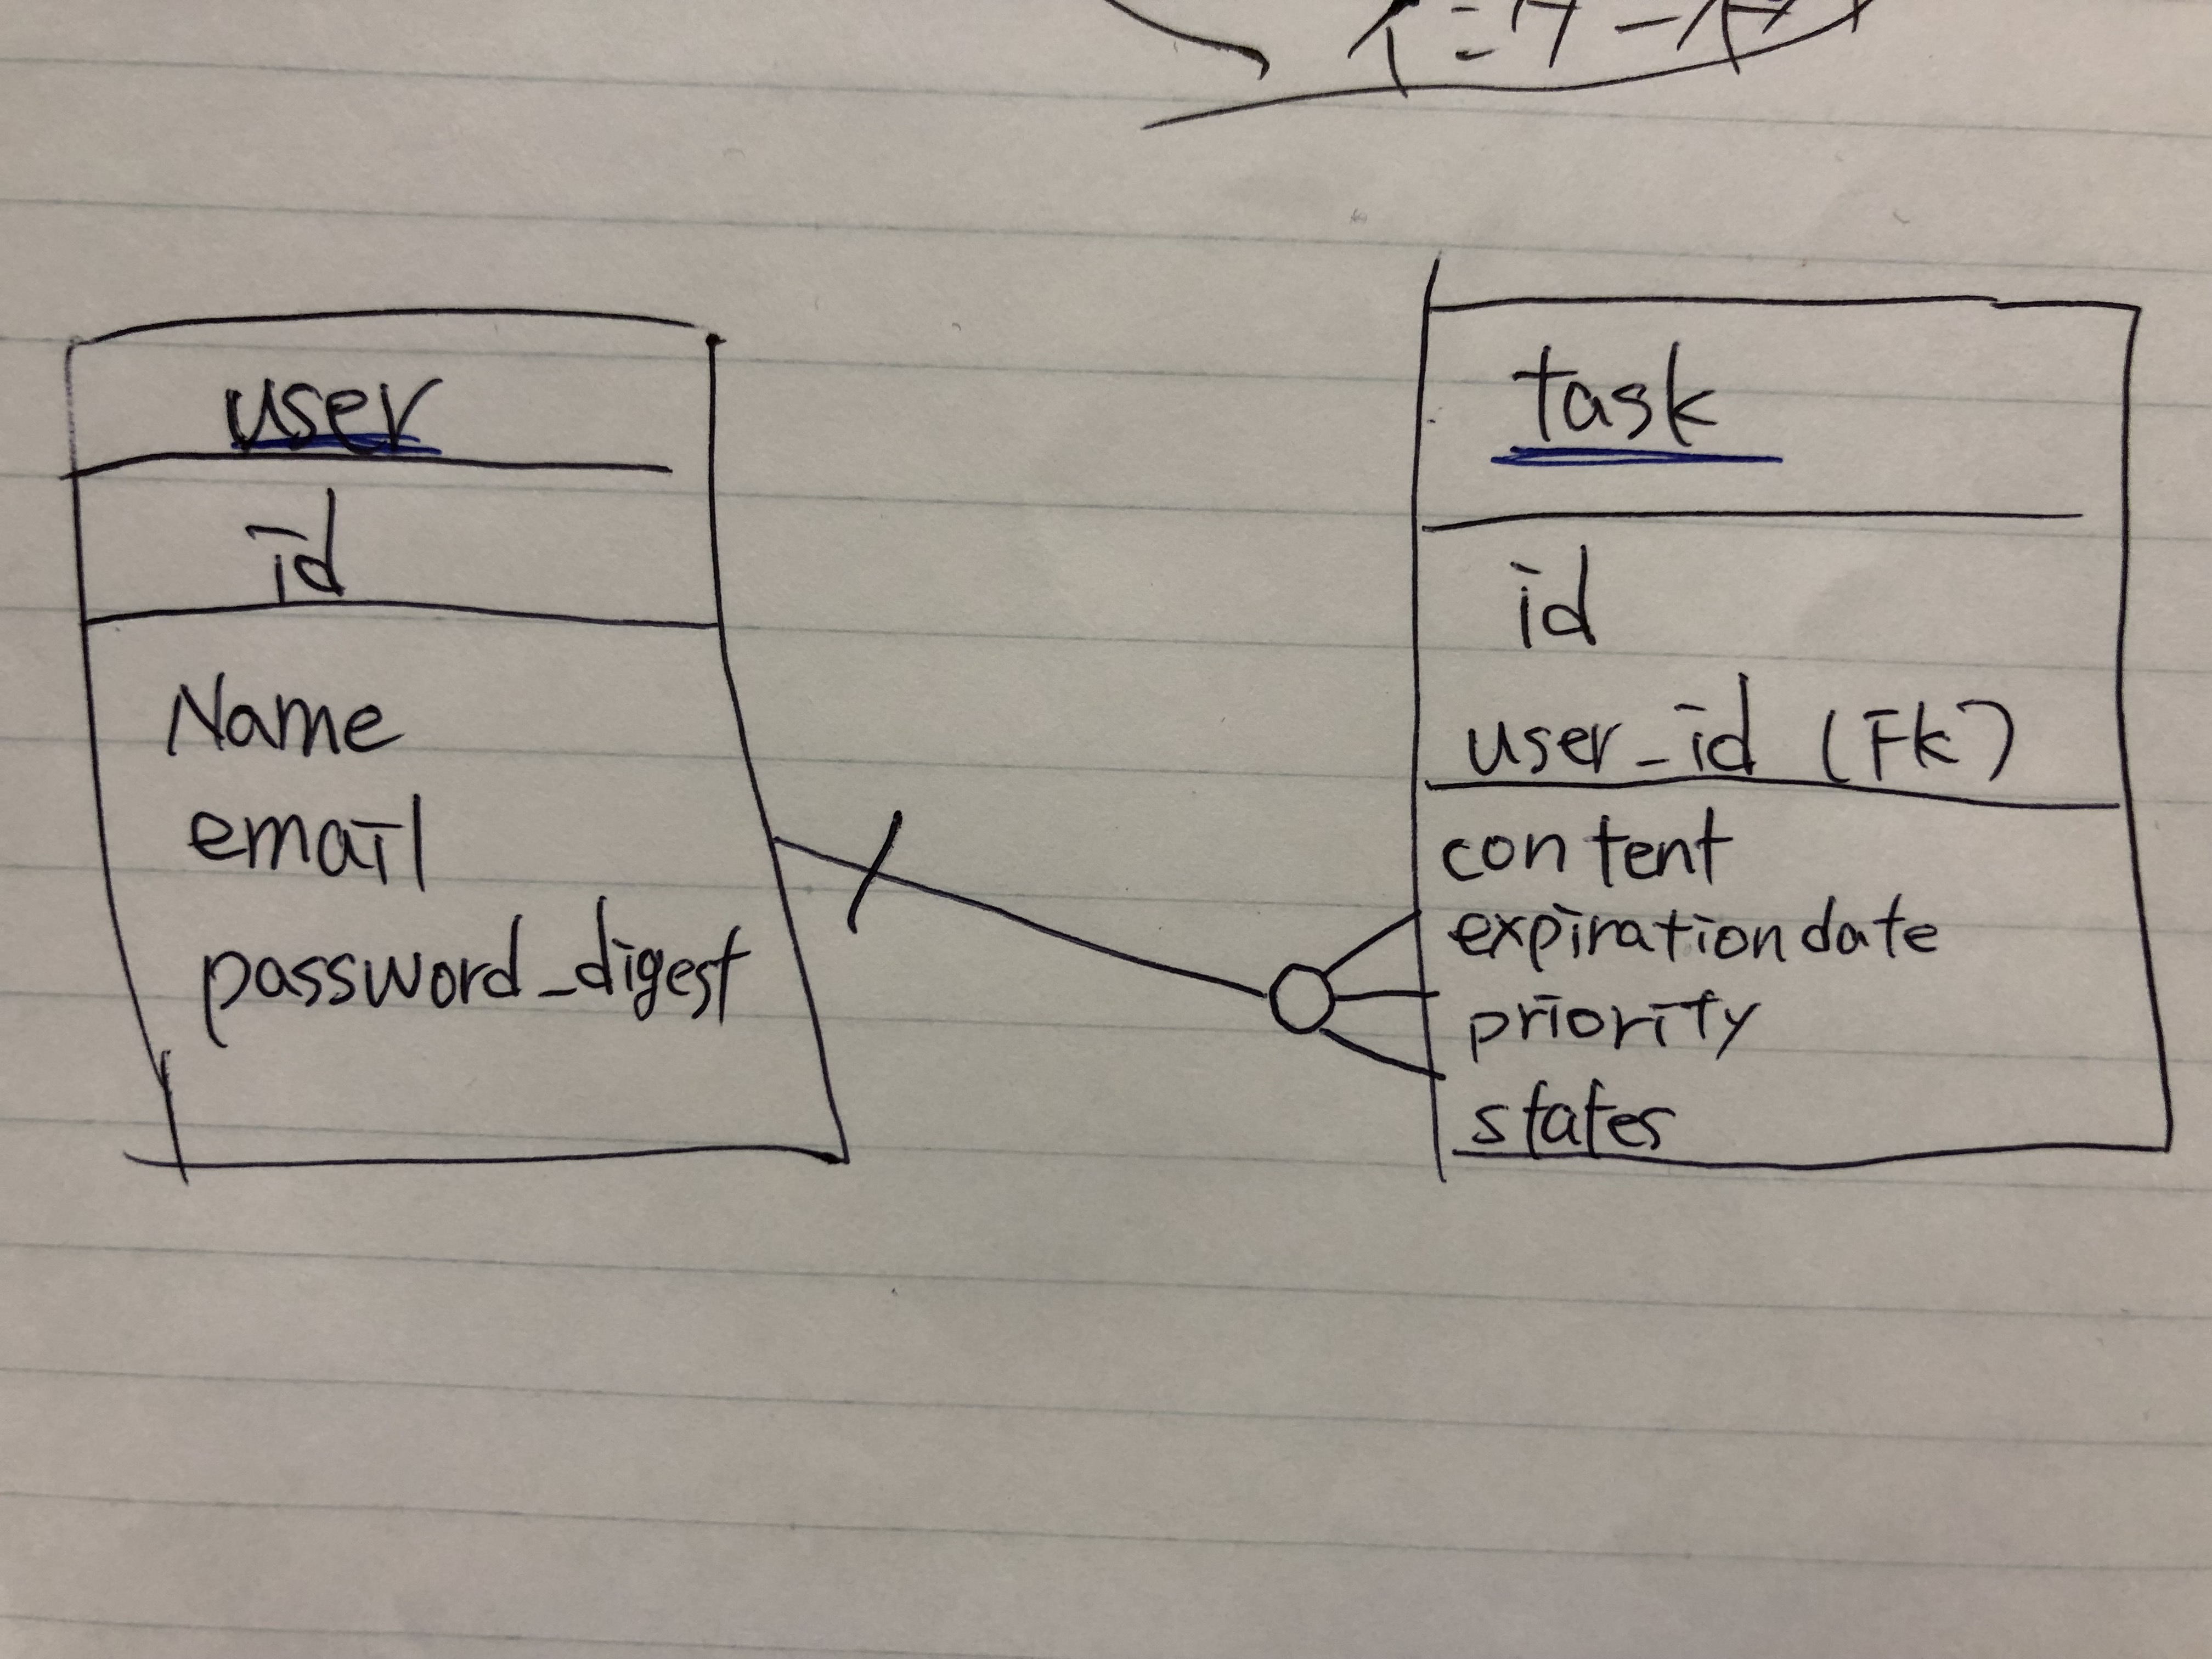 user
id
Name
email
password_digest
task
id
user_id (Fk)
content
expirationdate
priority
states